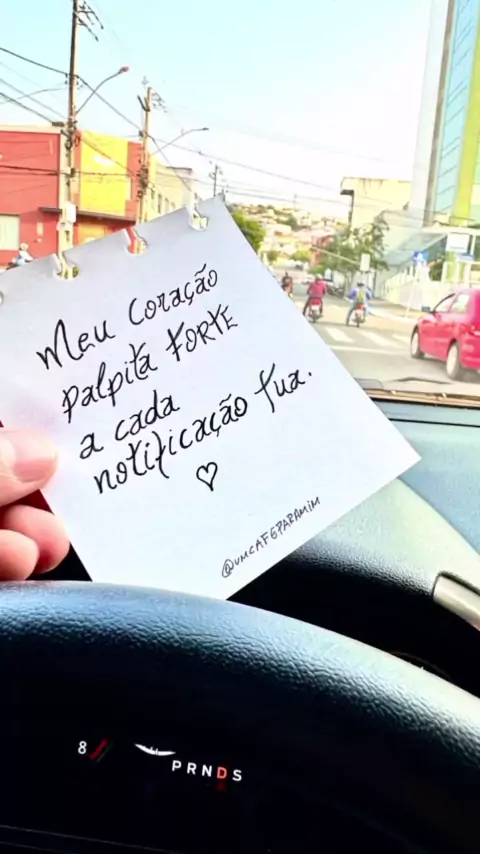 Meu coração
palpita FORTE
a cada
notificação tua.
@UMCAFEPARAMIM
8
PRNDS